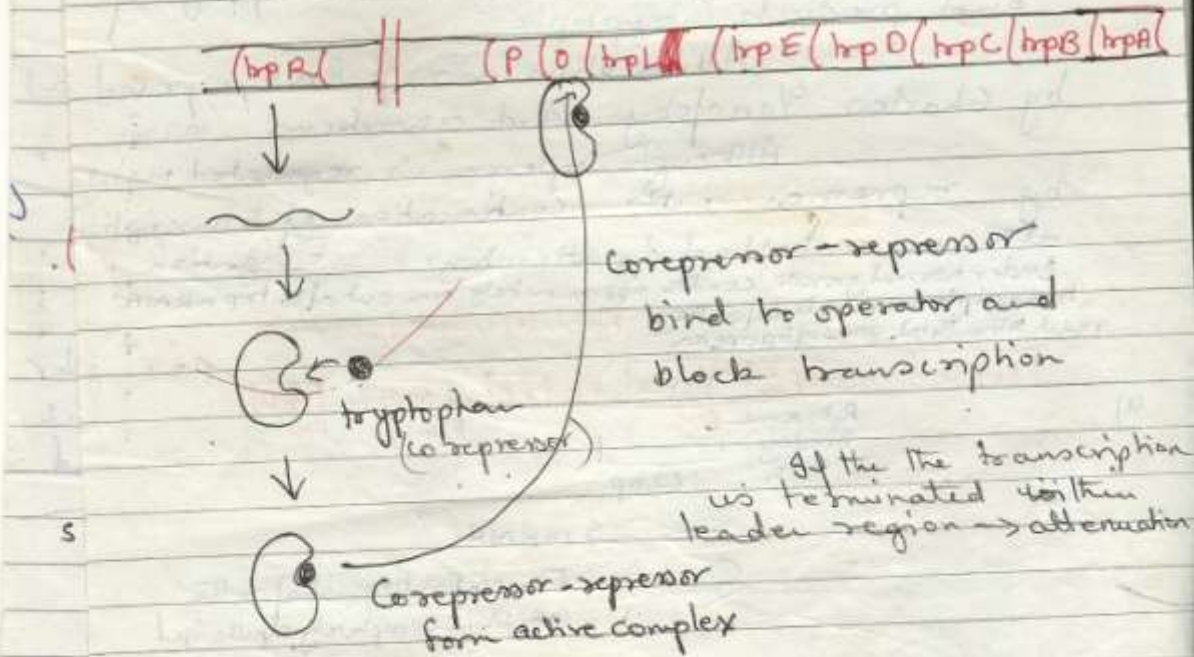 (trpR( || (P(O(trpL (trpE(trpD(trpC(trpB(trpA(
corepressor-repressor
bind to operator and
block transcription
tryptophan
(corepressor)
If the the transcription
is terminated within
leader region → attenuation
Corepressor-repressor
form active complex
s